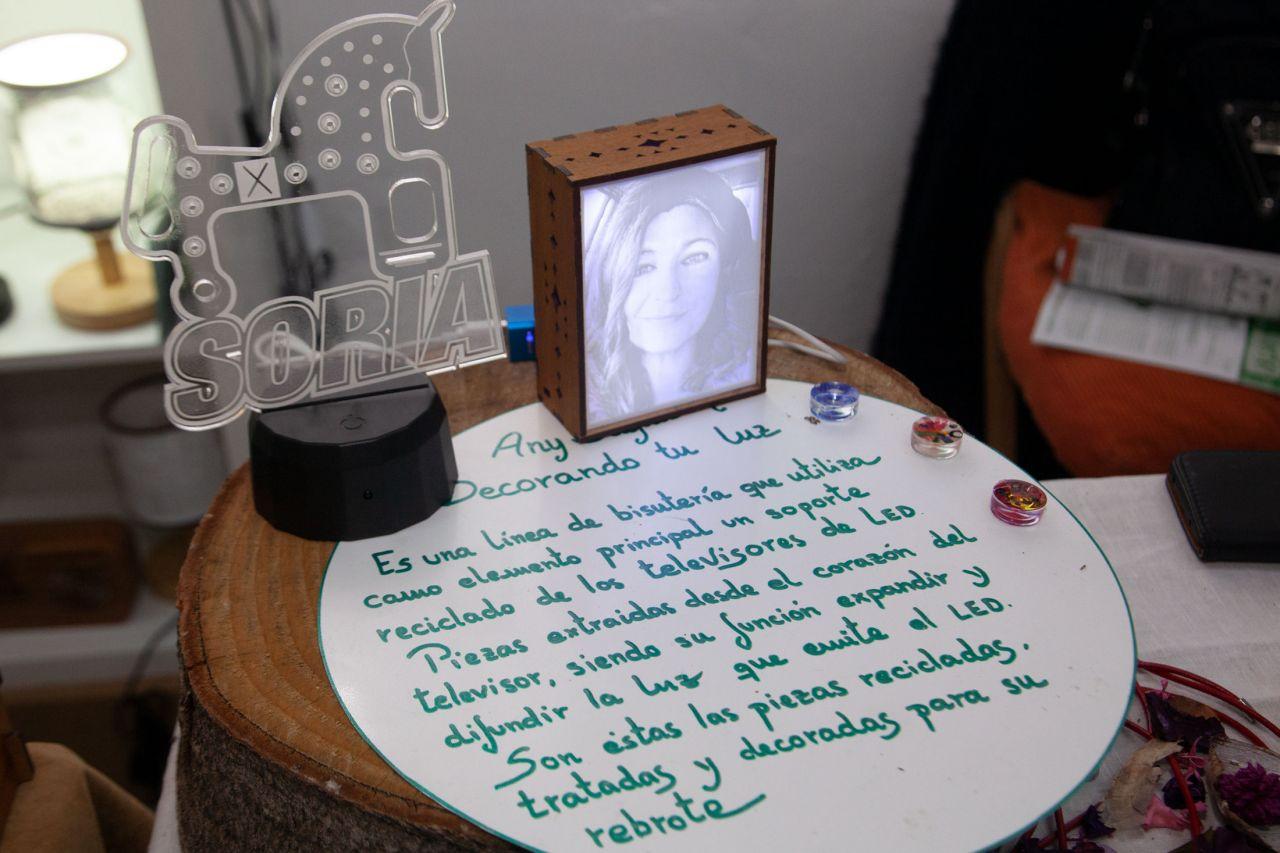 SORIA
Any
Decorando tu luz
Es una línea de bisutería que utiliza
como elemento principal un soporte
reciclado de los televisores de LED.
Piezas extraidas desde el corazón del
televisor, siendo su función expandir y
difundir la luz que emite el LED.
Son éstas las piezas recicladas,
tratadas y decoradas para su
rebrote